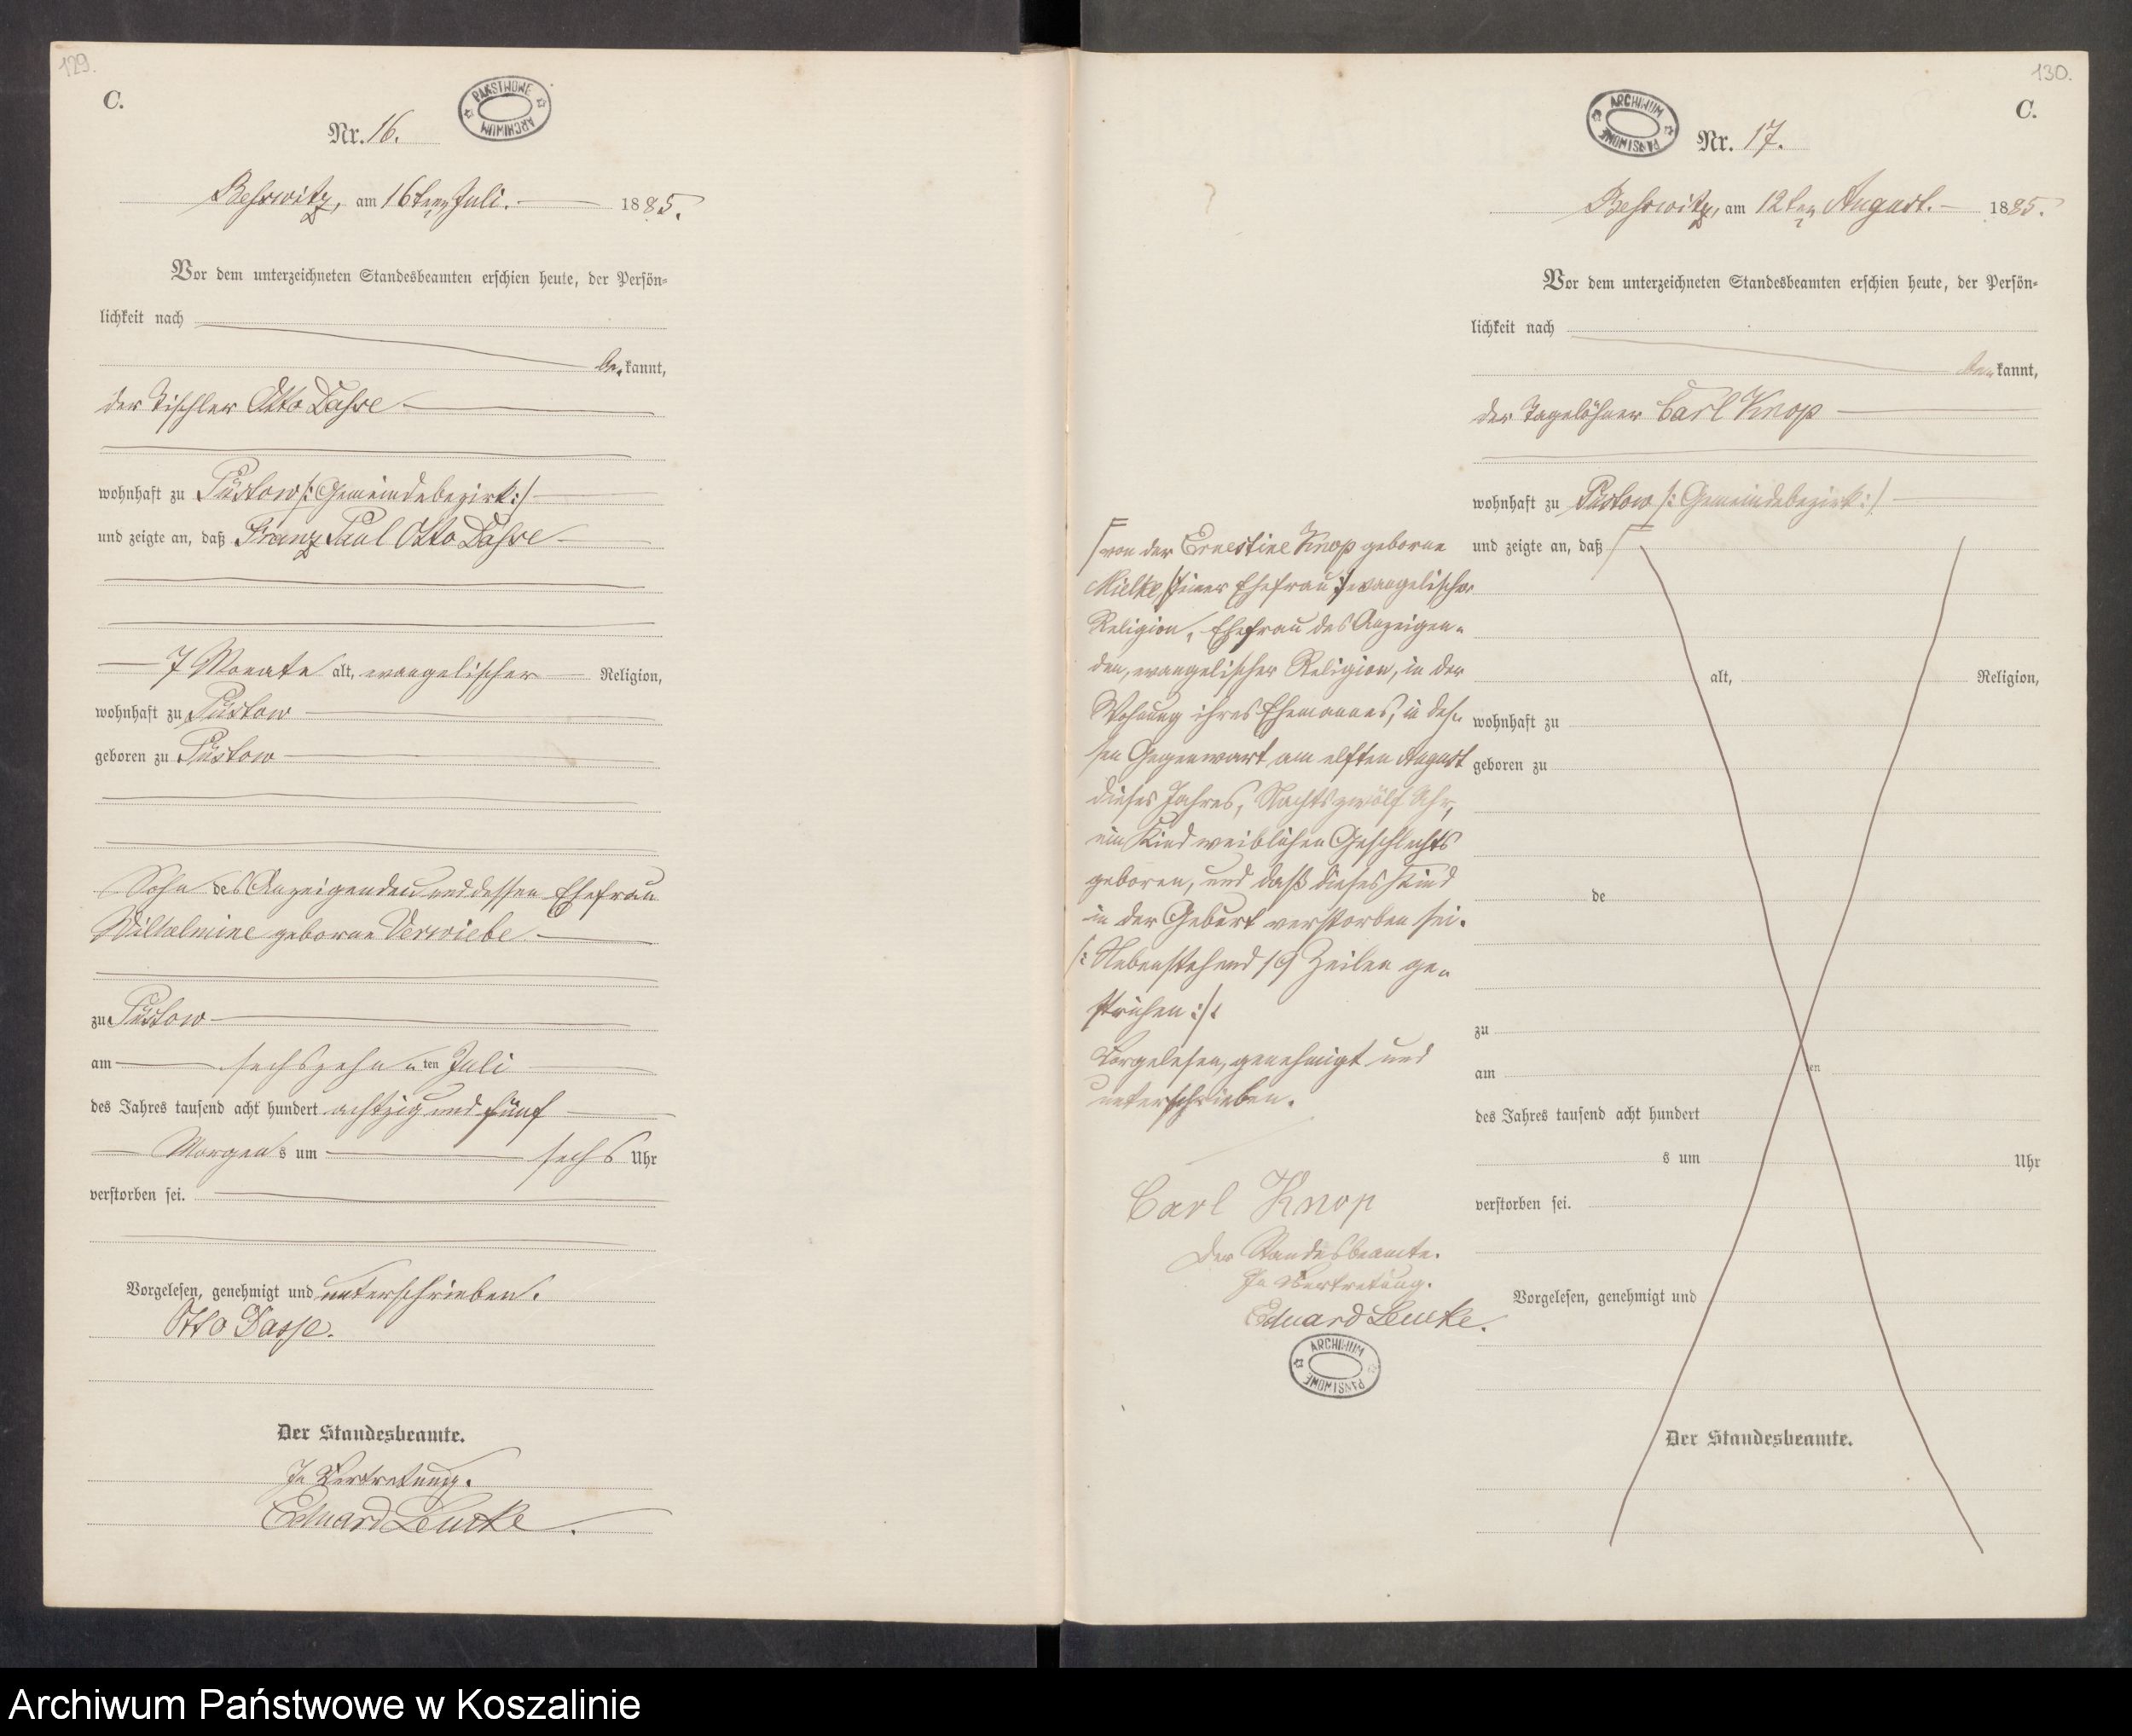 129.
C.
PAŃSTWOWE ARCHIWUM
Nr. 16.
Beßwitz, am 16ten Juli. 1885.
Vor dem unterzeichneten Standesbeamten erschien heute, der Persön-
lichkeit nach
be kannt,
der Tischler Otto
wohnhaft zu Püstow /: Gemeindebezirk :/
und zeigte an, daß Franz Paul Otto
7 Monate alt, evangelischer Religion,
wohnhaft zu Püstow
geboren zu Püstow
Sohn des Anzeigenden und dessen Ehefrau
Wilhelmine geborne Verwiebe
zu Püstow
am sechszehn ten Juli
des Jahres tausend acht hundert achtzig und fünf
Morgens um sechs Uhr
verstorben sei.
Vorgelesen, genehmigt und unterschrieben.
Otto Dasse.
Der Standesbeamte.
In Vertretung.
Eduard Lemke.
130.
C.
ARCHIWUM PAŃSTWOWE
Nr. 17.
Beßwitz, am 12ten August. 1885.
Vor dem unterzeichneten Standesbeamten erschien heute, der Persön-
lichkeit nach
be kannt,
der Tagelöhner Carl Knop
wohnhaft zu Püstow /: Gemeindebezirk :/
und zeigte an, daß
von der Ernestine Knop geborne
Mielke, /: seiner Ehefrau :/ evangelischer
Religion, Ehefrau des Anzeigen-
den, evangelischer Religion, in der
Wohnung ihres Ehemannes, in des-
sen Gegenwart am elften August
dieses Jahres, Nachts zwölf Uhr,
ein Kind weiblichen Geschlechts
geboren, und daß dieses Kind
in der Geburt verstorben sei.
/: Nebenstehend 19 Zeilen ge-
strichen :/.
Vorgelesen, genehmigt und
unterschrieben.
Carl Knop
Der Standesbeamte.
In Vertretung.
Eduard Lemke.
ARCHIWUM PAŃSTWOWE
alt, Religion,
wohnhaft zu
geboren zu
de
zu
am ten
des Jahres tausend acht hundert
s um Uhr
verstorben sei.
Vorgelesen, genehmigt und
Der Standesbeamte.
Archiwum Państwowe w Koszalinie